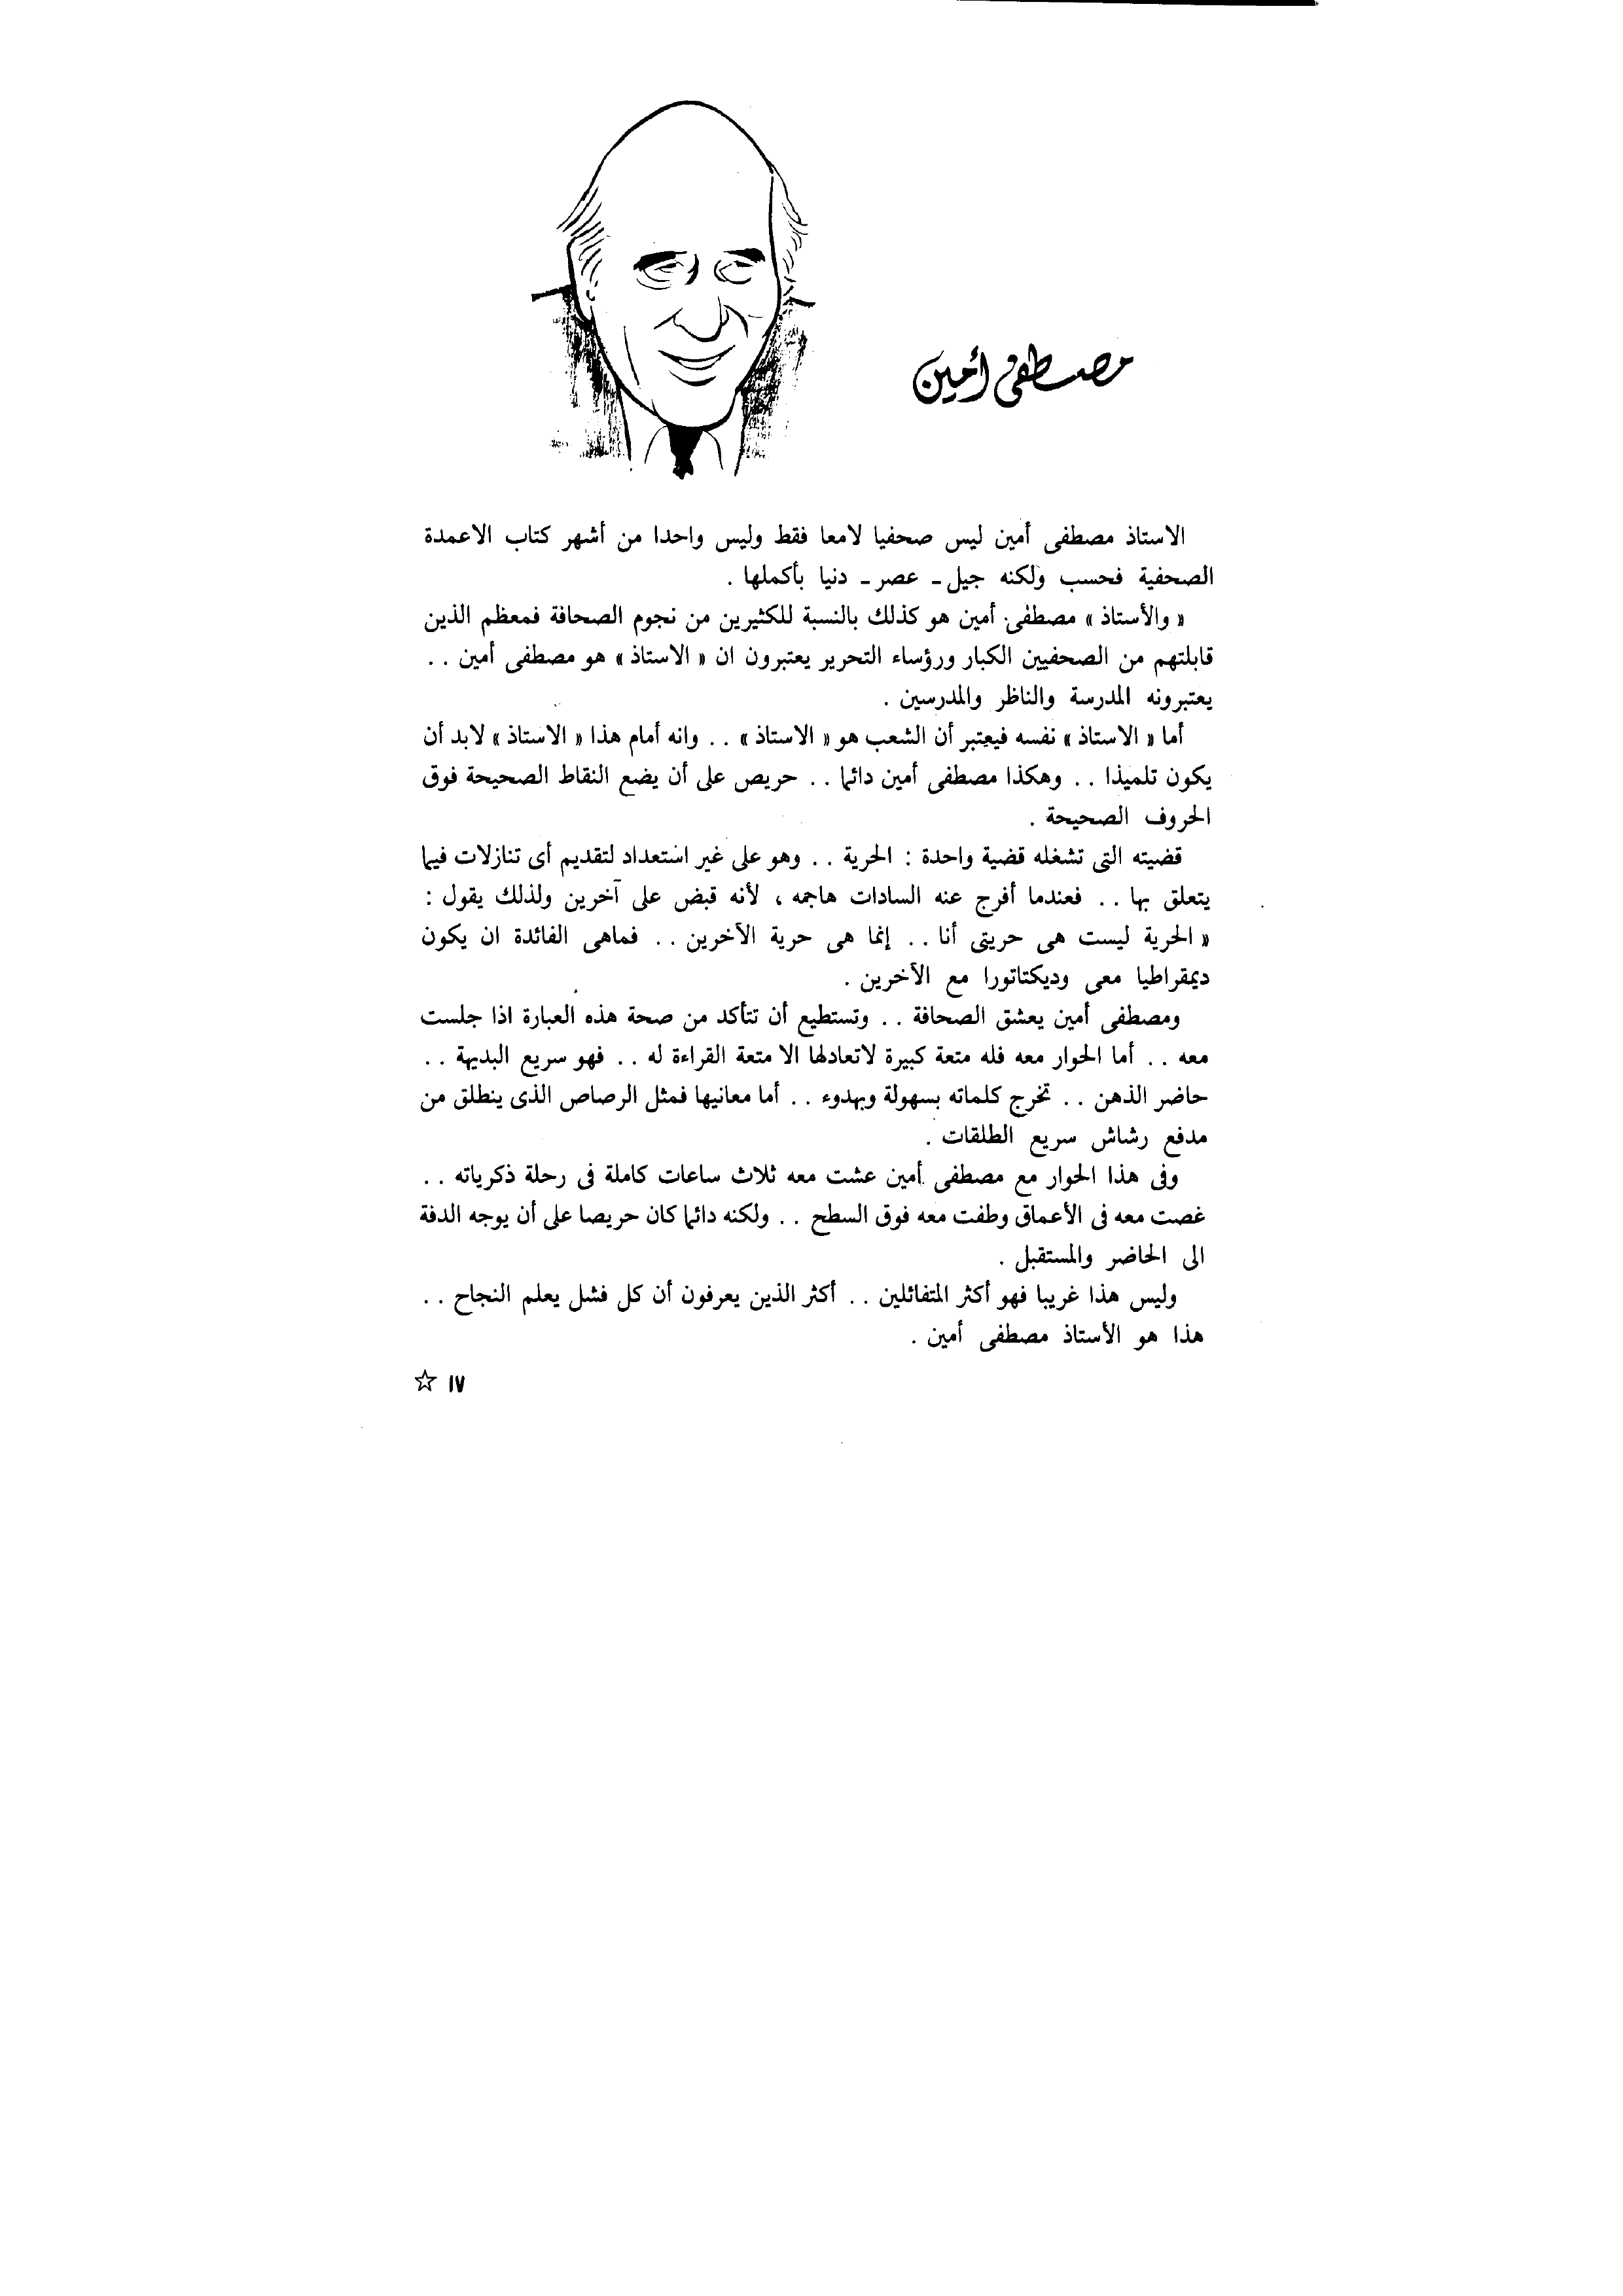 مصطفى أمين
الاستاذ مصطفى أمين ليس صحفيا لامعا فقط وليس واحدا من أشهر كتاب الاعمدة
الصحفية فحسب ولكنه جيل ـ عصر ـ دنيا بأكملها .
« والأستاذ » مصطفى أمين هو كذلك بالنسبة للكثيرين من نجوم الصحافة فمعظم الذين
قابلتهم من الصحفيين الكبار ورؤساء التحرير يعتبرون ان « الاستاذ » هو مصطفى أمين . .
يعتبرونه المدرسة والناظر والمدرسين .
أما « الاستاذ » نفسه فيعتبر أن الشعب هو « الاستاذ » . . وانه أمام هذا « الاستاذ » لابد أن
يكون تلميذا . . وهكذا مصطفى أمين دائما . . حريص على أن يضع النقاط الصحيحة فوق
الحروف الصحيحة .
قضيته التى تشغله قضية واحدة : الحرية . . وهو على غير استعداد لتقديم أى تنازلات فيما
يتعلق بها . . فعندما أفرج عنه السادات هاجمه ، لأنه قبض على آخرين ولذلك يقول :
« الحرية ليست هى حريتى أنا . . إنما هى حرية الآخرين . . فماهى الفائدة ان يكون
ديمقراطيا معى وديكتاتورا مع الآخرين .
ومصطفى أمين يعشق الصحافة . . وتستطيع أن تتأكد من صحة هذه العبارة اذا جلست
معه . . أما الحوار معه فله متعة كبيرة لاتعادلها الا متعة القراءة له . . فهو سريع البديهة . .
حاضر الذهن . . تخرج كلماته بسهولة وبهدوء . . أما معانيها فمثل الرصاص الذى ينطلق من
مدفع رشاش سريع الطلقات .
وفى هذا الحوار مع مصطفى أمين عشت معه ثلاث ساعات كاملة فى رحلة ذكرياته . .
غصت معه فى الأعماق وطفت معه فوق السطح . . ولكنه دائما كان حريصا على أن يوجه الدفة
الى الحاضر والمستقبل .
وليس هذا غريبا فهو أكثر المتفائلين . . أكثر الذين يعرفون أن كل فشل يعلم النجاح . .
هذا هو الأستاذ مصطفى أمين .
١٧ ☆